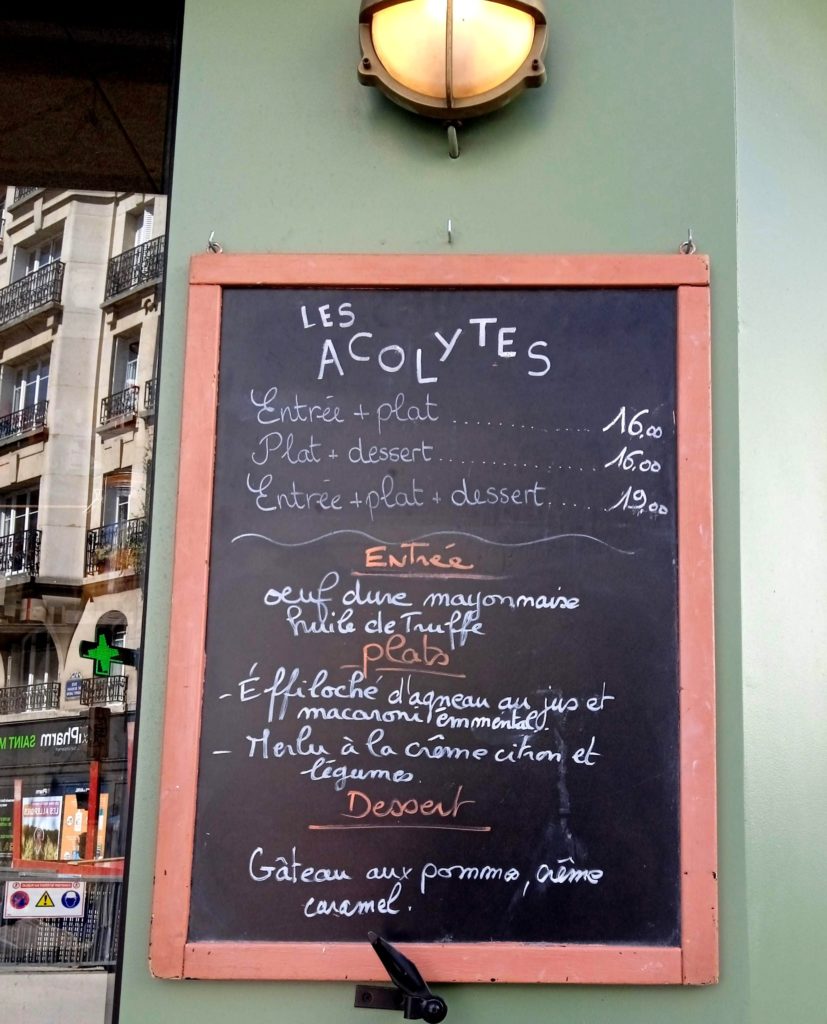 LES
ACOLYTES
Entrée + plat .............. 16,00
Plat + dessert .............. 16,00
Entrée + plat + dessert..... 19,00
ENTRÉE
oeuf dure mayonnaise
huile de Truffe
plats
- Éffiloché d'agneau au jus et
macaroni emmental.
- Merlu à la crême citron et
légumes.
Dessert
Gâteau aux pomme, crême
caramel.
iPharm SAINT M
LES ALLERGIES